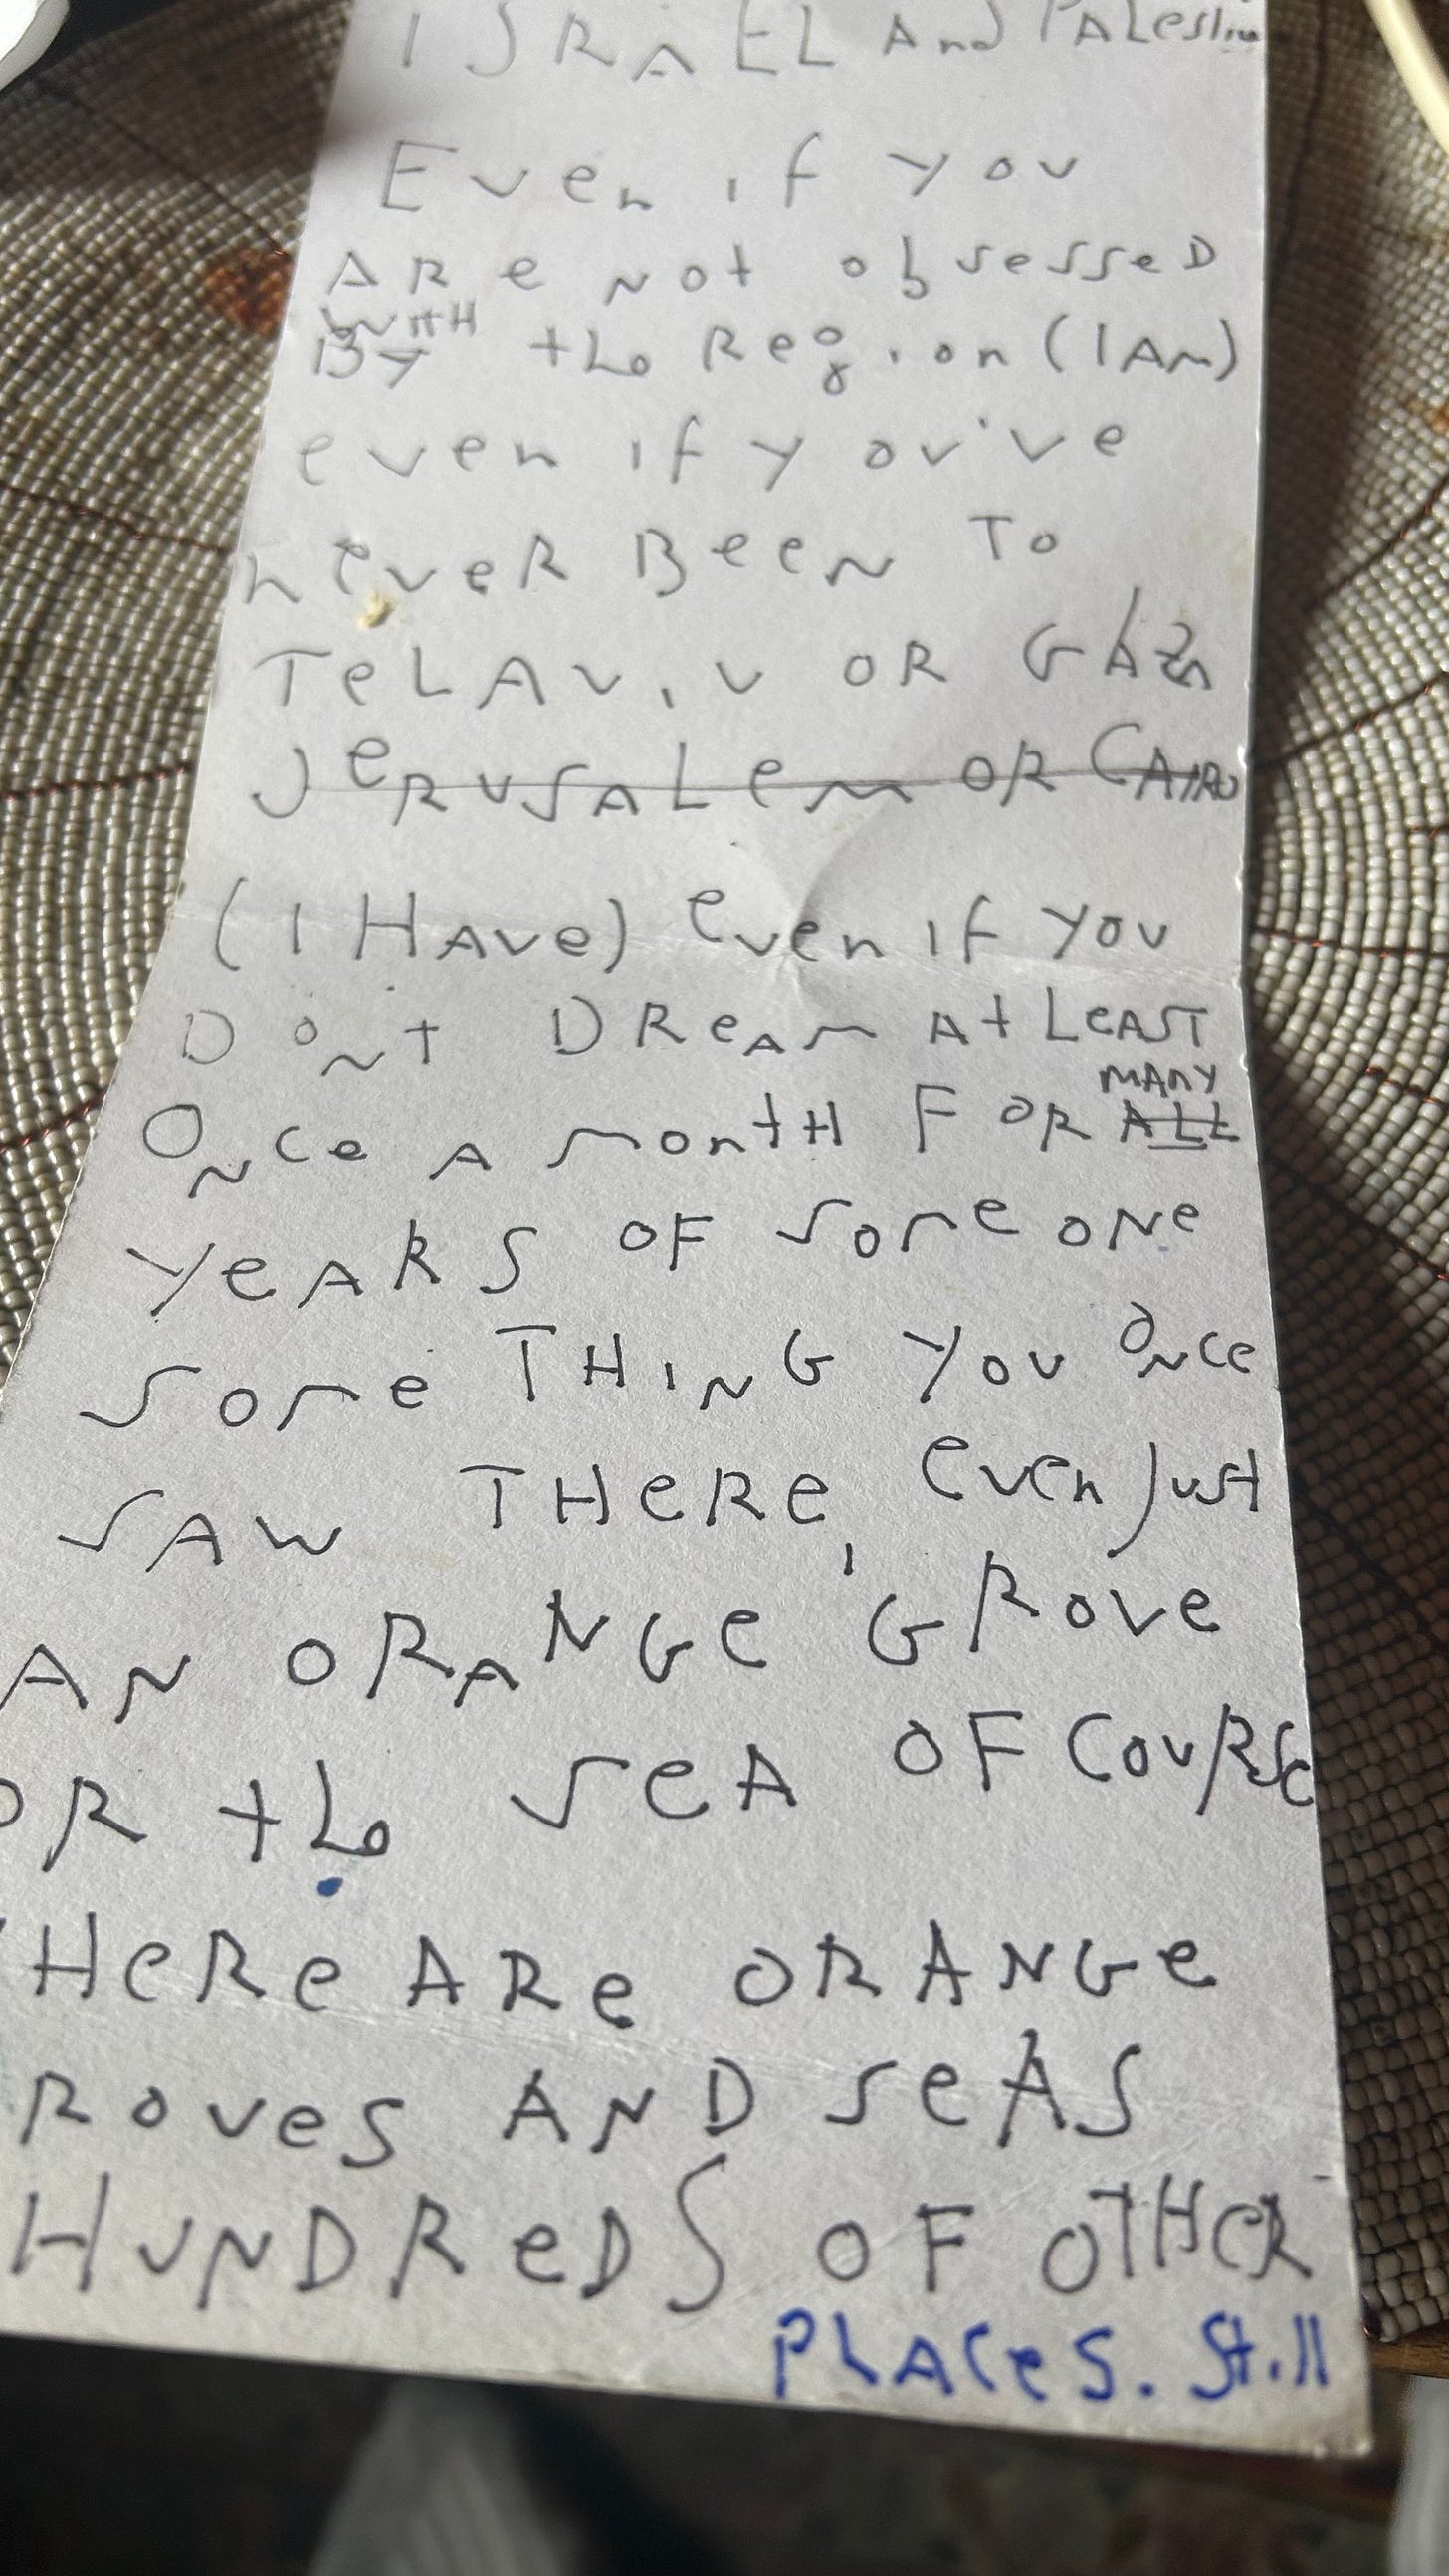 ISRAEL And PALestine
Even if you
ARe not obsesseD
WITH
By the Region (I AM)
even if you've
never Been To
TeLAviv OR GAZA
JeRusALem OR CAIRO
(I HAve) even if you
Dont DReAm At LeAST
Once A montH FOR ALL
MAny
yeARS OF someone
someTHING you once
SAW THeRe, even just
AN ORANGe GRove
OR the seA OF COURSe
HeRe ARe ORANGe
Roves AND seAS
HUNDReDS OF OTHeR
PLACeS. Still